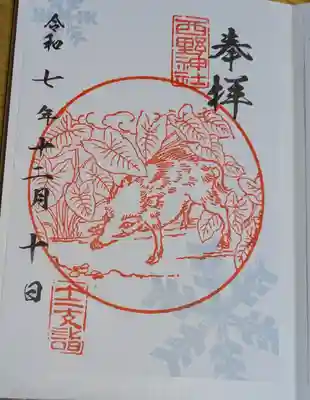 奉拝
西野神社
十二支詣
令和七年十二月十日